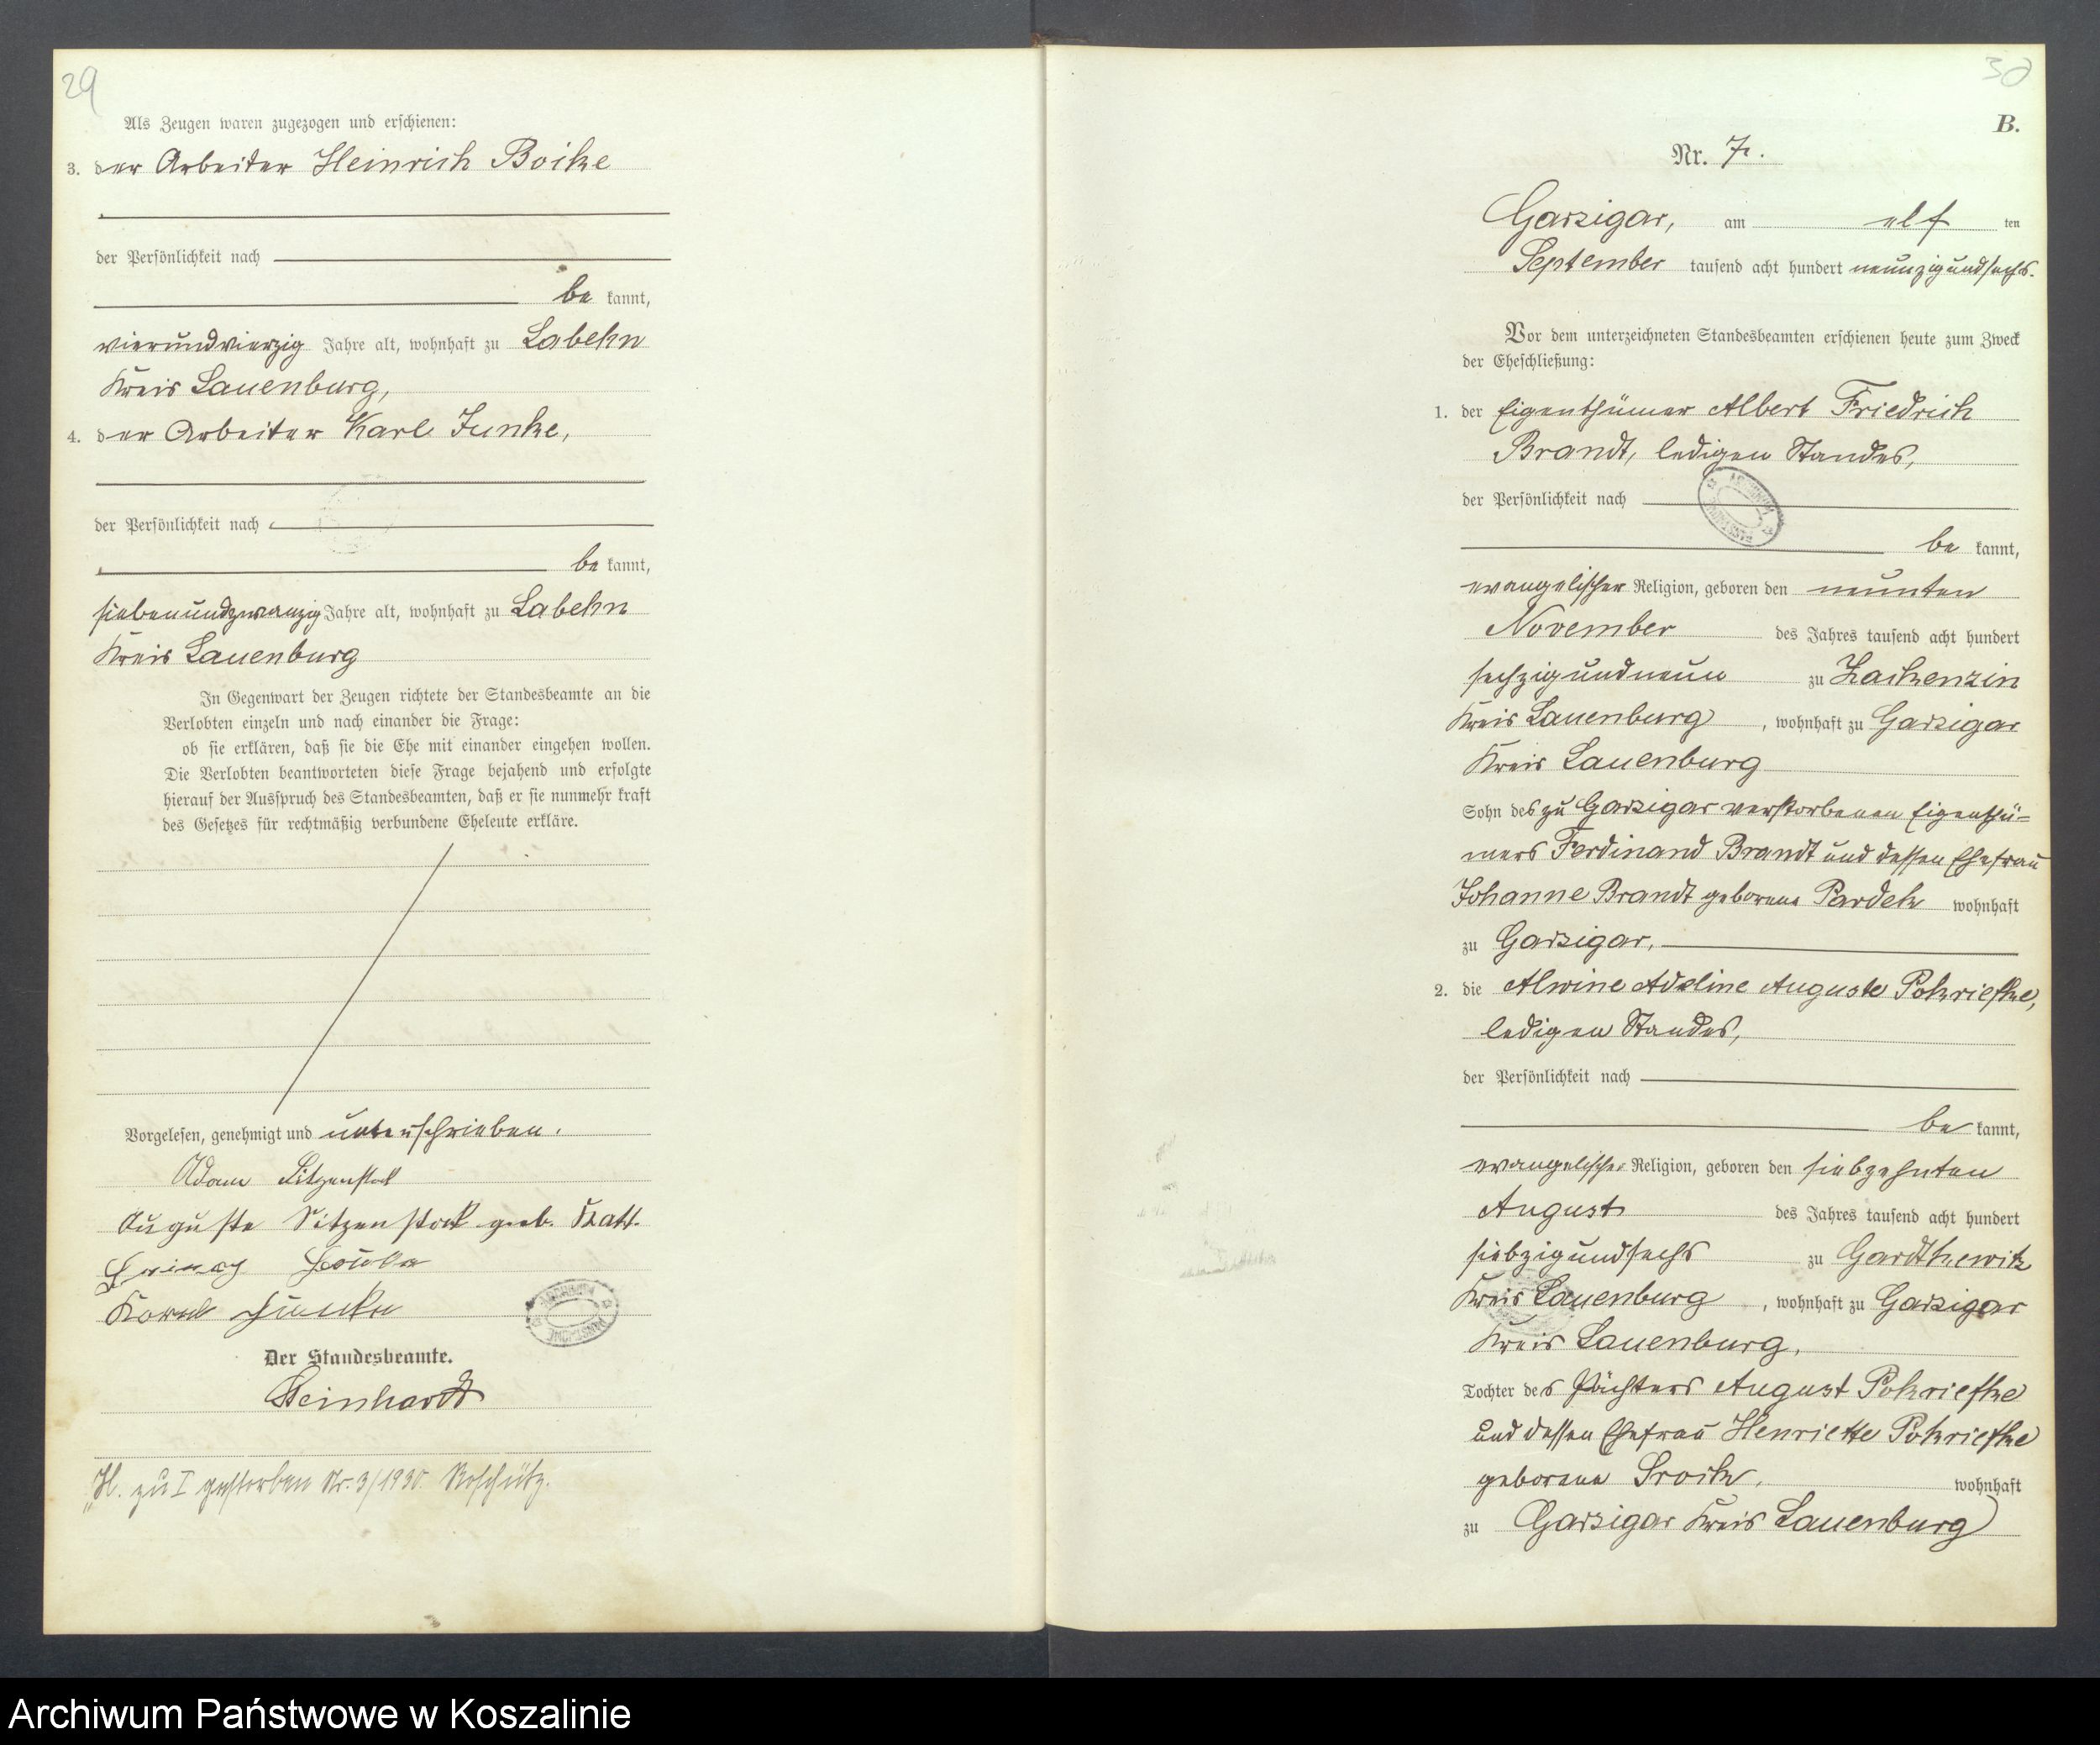 29
Als Zeugen waren zugezogen und erschienen:
3. der Arbeiter Heinrich Boike
der Persönlichkeit nach
be kannt,
vierundvierzig Jahre alt, wohnhaft zu Labehn
Kreis Lauenburg,
4. der Arbeiter Karl Junke,
der Persönlichkeit nach
be kannt,
siebenundzwanzig Jahre alt, wohnhaft zu Labehn
Kreis Lauenburg
In Gegenwart der Zeugen richtete der Standesbeamte an die
Verlobten einzeln und nach einander die Frage:
ob sie erklären, daß sie die Ehe mit einander eingehen wollen.
Die Verlobten beantworteten diese Frage bejahend und erfolgte
hierauf der Ausspruch des Standesbeamten, daß er sie nunmehr kraft
des Gesetzes für rechtmäßig verbundene Eheleute erkläre.
Vorgelesen, genehmigt und unterschrieben.
Adam Sitzenstock
Auguste Sitzenstock geb.
Karl Junke
Der Standesbeamte.
Reinhardt
"H. zu I gestorben Nr. 3/1930. Roschütz.
30
B.
Nr. 7.
Garzigar, am elf ten
September tausend acht hundert neunzigundsechs.
Vor dem unterzeichneten Standesbeamten erschienen heute zum Zweck
der Eheschließung:
1. der Eigenthümer Albert Friedrich
Brandt, ledigen Standes,
der Persönlichkeit nach
be kannt,
evangelischer Religion, geboren den neunten
November des Jahres tausend acht hundert
sechzigundneun zu Zackenzin
Kreis Lauenburg, wohnhaft zu Garzigar
Kreis Lauenburg
Sohn des zu Garzigar verstorbenen Eigenthü-
mers Ferdinand Brandt und dessen Ehefrau
Johanne Brandt geborene Pardek wohnhaft
zu Garzigar,
2. die Alwine Adeline Auguste Pokriefke,
ledigen Standes,
der Persönlichkeit nach
be kannt,
evangelischer Religion, geboren den siebzehnten
August des Jahres tausend acht hundert
siebzigundsechs zu Gardkewitz
Kreis Lauenburg, wohnhaft zu Garzigar
Kreis Lauenburg,
Tochter des Pächters August Pokriefke
und dessen Ehefrau Henriette Pokriefke
geborene Srock, wohnhaft
zu Garzigar Kreis Lauenburg
Archiwum Państwowe w Koszalinie